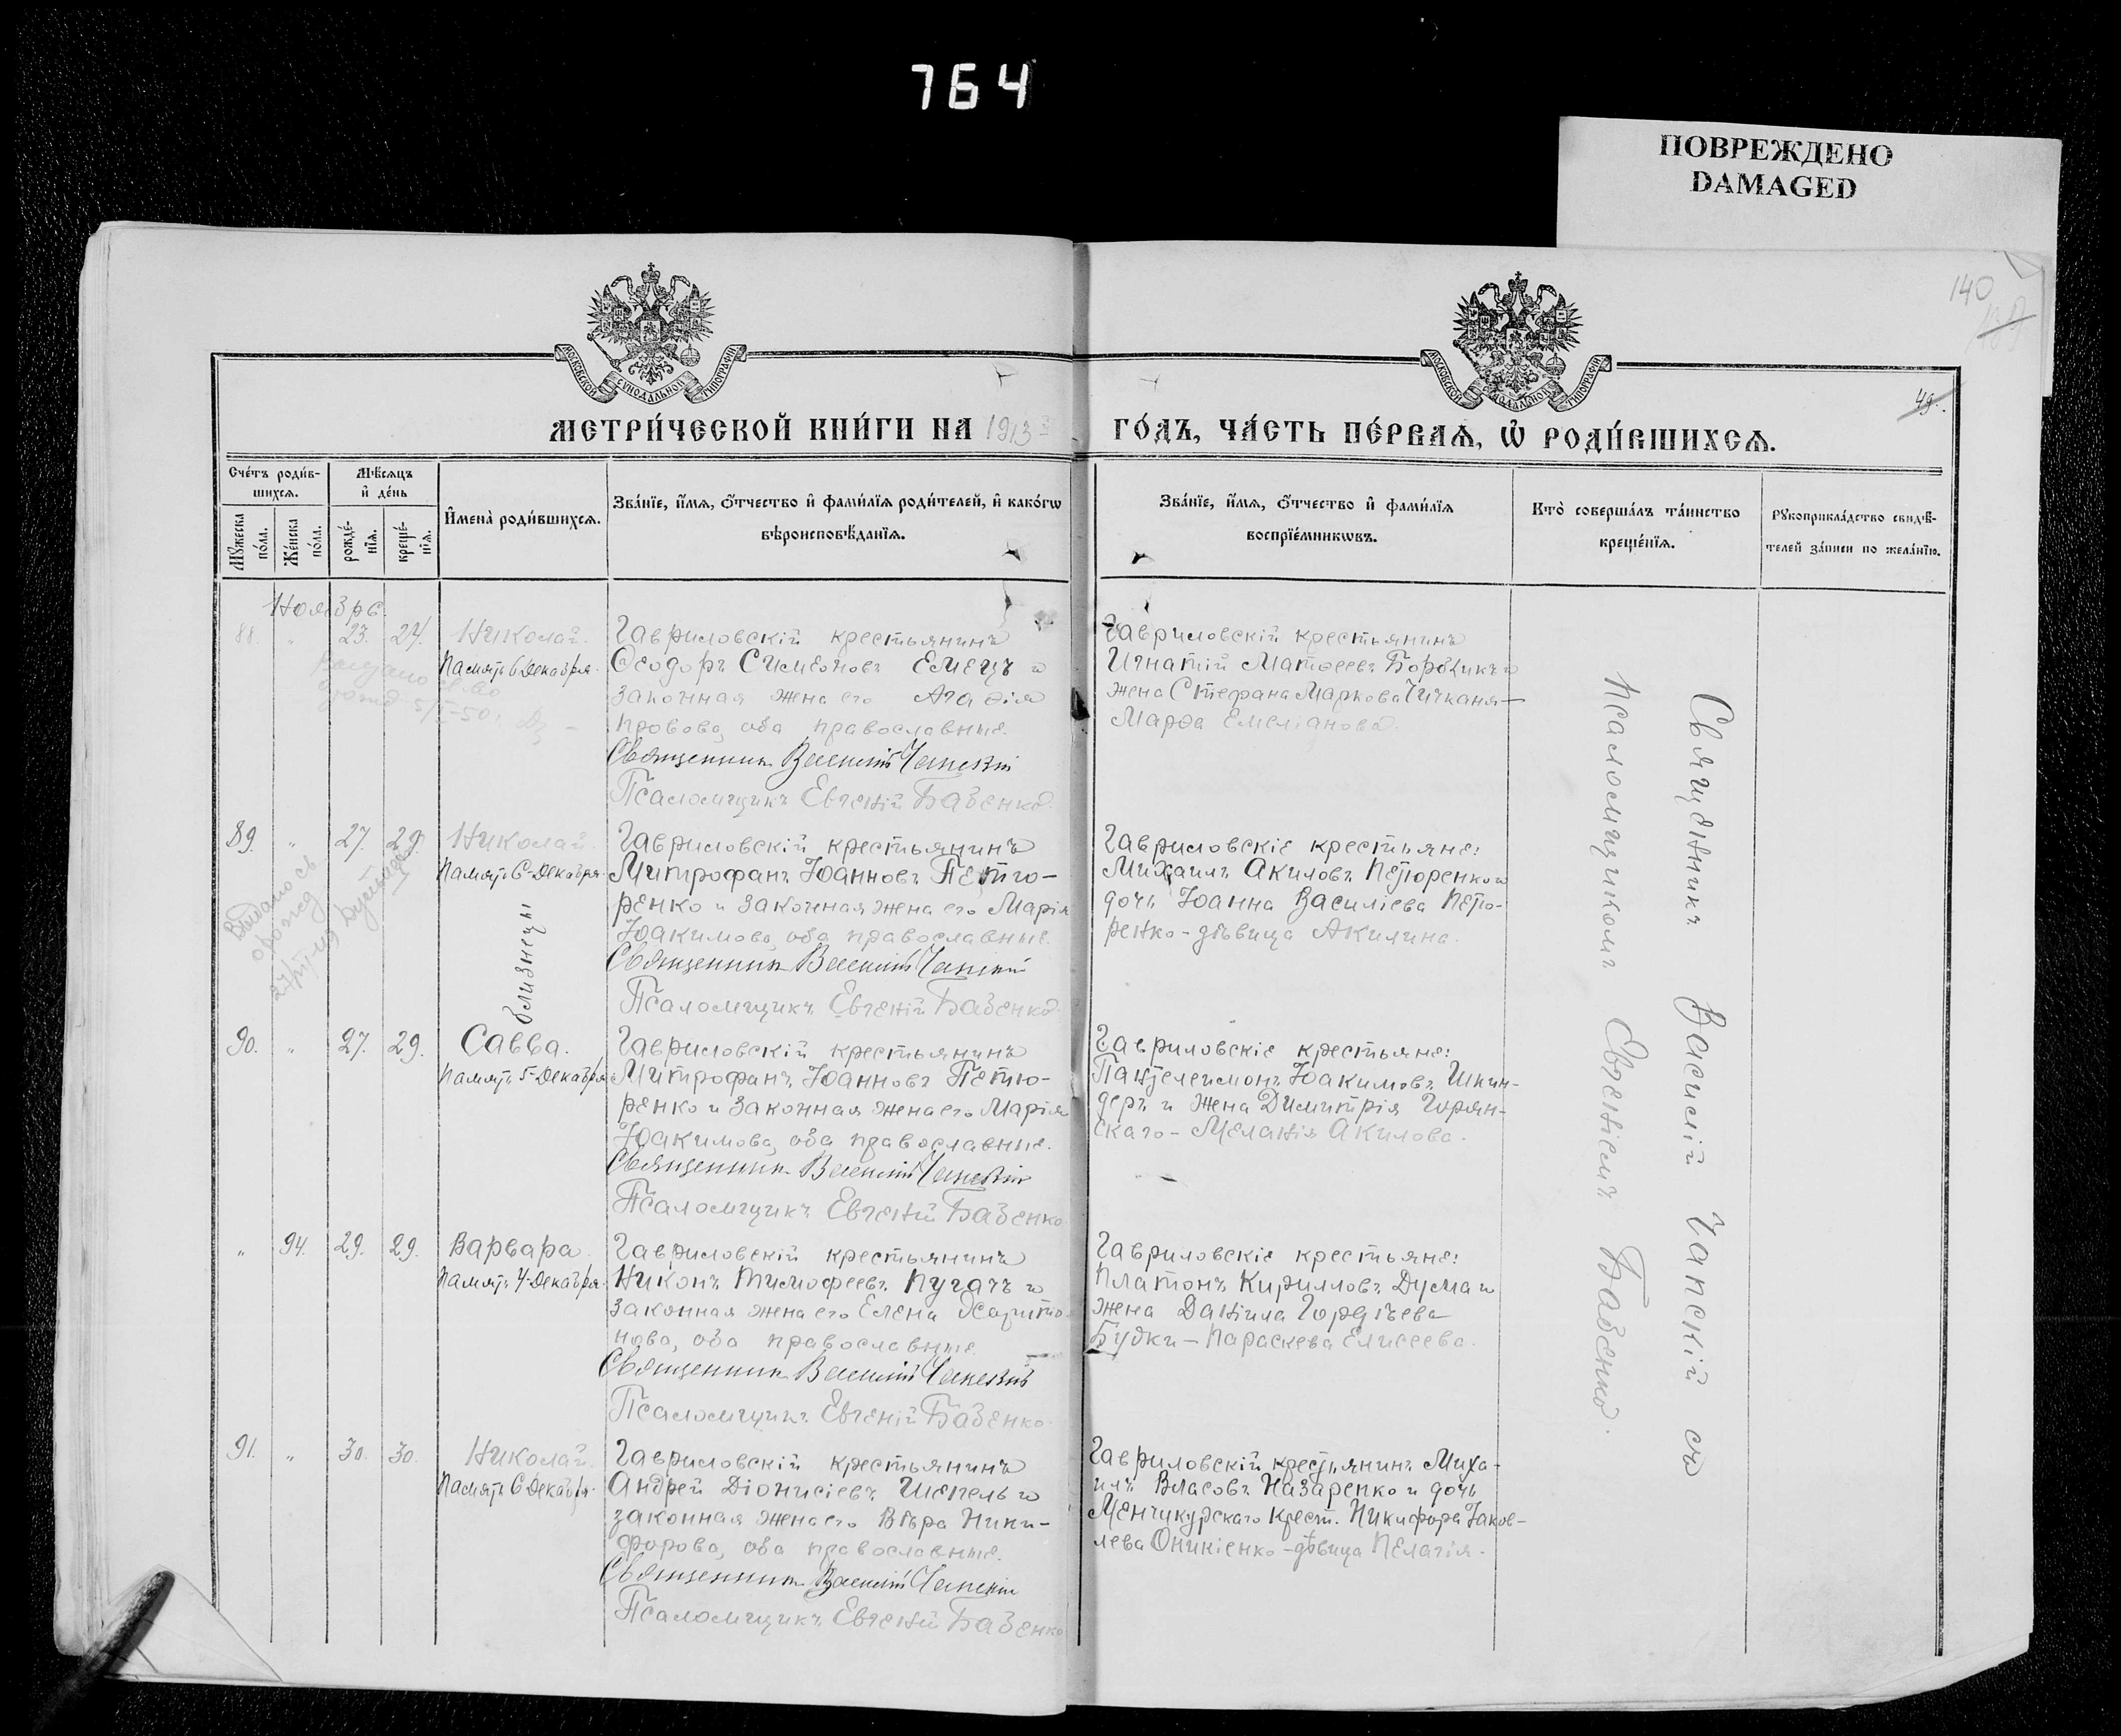 764
ПОВРЕЖДЕНО
DAMAGED
140
49.
МОСКОВСКОЙ СѴНОДАЛЬНОЙ ТИПОГРАФІИ
МОСКОВСКОЙ СѴНОДАЛЬНОЙ ТИПОГРАФІИ
МЕТРИ́ЧЕСКОЙ КНИ́ГИ НА 1913 ГО́ДЪ, ЧА́СТЬ ПЕ́РВАѦ, Ѡ҆ РОДИ́ВШИХСѦ.
Сче́тъ роди́в-
шихсѧ.
Мѣ́сѧцъ
и҆ де́нь
Мꙋ́жеска
по́ла.
Же́нска
по́ла.
рожде́-
нїѧ.
креще́-
нїѧ.
И҆мена̀ роди́вшихсѧ.
Зва́нїе, и҆́мѧ, ѻ҆́тчество и҆ фами́лїѧ роди́телей, и҆ како́гѡ
вѣроисповѣ́данїѧ.
Зва́нїе, и҆́мѧ, ѻ҆́тчество и҆ фами́лїѧ
воспрїе́мникѡвъ.
Кто̀ соверша́лъ та́инство
креще́нїѧ.
Рꙋкоприкла́дство свидѣ́-
телей за́писи по жела́нїю.
Ноябрь
88. " 23. 24. Николай.
Память 6 Декабря.
Гавриловскій крестьянинъ
Ѳеодоръ Симеоновъ Емецъ и
законная жена его Агаѳія
Провова, оба православные.
Священникъ Василій Чапскій
Псаломщикъ Евгеній Бабенко.
Гавриловскій крестьянинъ
Игнатій Матѳеевъ и
жена Стефана Маркова Чичканя—
Марѳа Емеліанова.
89. " 27. 29. Николай.
Память 6 Декабря.
Выдано св.
27/VII
близнецы
Гавриловскій крестьянинъ
Митрофанъ Іоанновъ Петю-
ренко и законная жена его Марія
Іоакимова, оба православные.
Священникъ Василій Чапскій
Псаломщикъ Евгеній Бабенко.
Гавриловскіе крестьяне:
Михаилъ Акиловъ Петюренко и
дочь Іоанна Василіева Петю-
ренко - дѣвица Акилина.
90. " 27. 29. Савва.
Память 5 Декабря
Гавриловскій крестьянинъ
Митрофанъ Іоанновъ Петю-
ренко и законная жена его Марія
Іоакимова, оба православные.
Священникъ Василій Чапскій
Псаломщикъ Евгеній Бабенко
Гавриловскіе крестьяне:
Пантелеимонъ Іоакимовъ Шкин-
деръ и жена Димитрія Горян-
скаго - Меланія Акилова.
" 94. 29. 29. Варвара.
Память 4 Декабря.
Гавриловскій крестьянинъ
Никонъ Тимофеевъ Пугачъ и
законная жена его Елена Харито-
нова, оба православные.
Священникъ Василій Чапскій
Псаломщикъ Евгеній Бабенко.
Гавриловскіе крестьяне:
Платонъ Кирилловъ Дусма и
жена Даніила Гордѣева
Будки — Параскева Елисеева.
91. " 30. 30. Николай.
Память 6 Декабря.
Гавриловскій крестьянинъ
Андрей Діонисіевъ Шепель и
законная жена его Вѣра Ники-
форова, оба православные.
Священникъ Василій Чапскій
Псаломщикъ Евгеній Бабенко
Гавриловскій крестьянинъ Миха-
илъ Власовъ Назаренко и дочь
Менчикурскаго крест. Никифора Іаков-
лева Оникіенко - дѣвица Пелагія.
Священникъ Василій Чапскій съ
псаломщикомъ Евгеніемъ Бабенко.